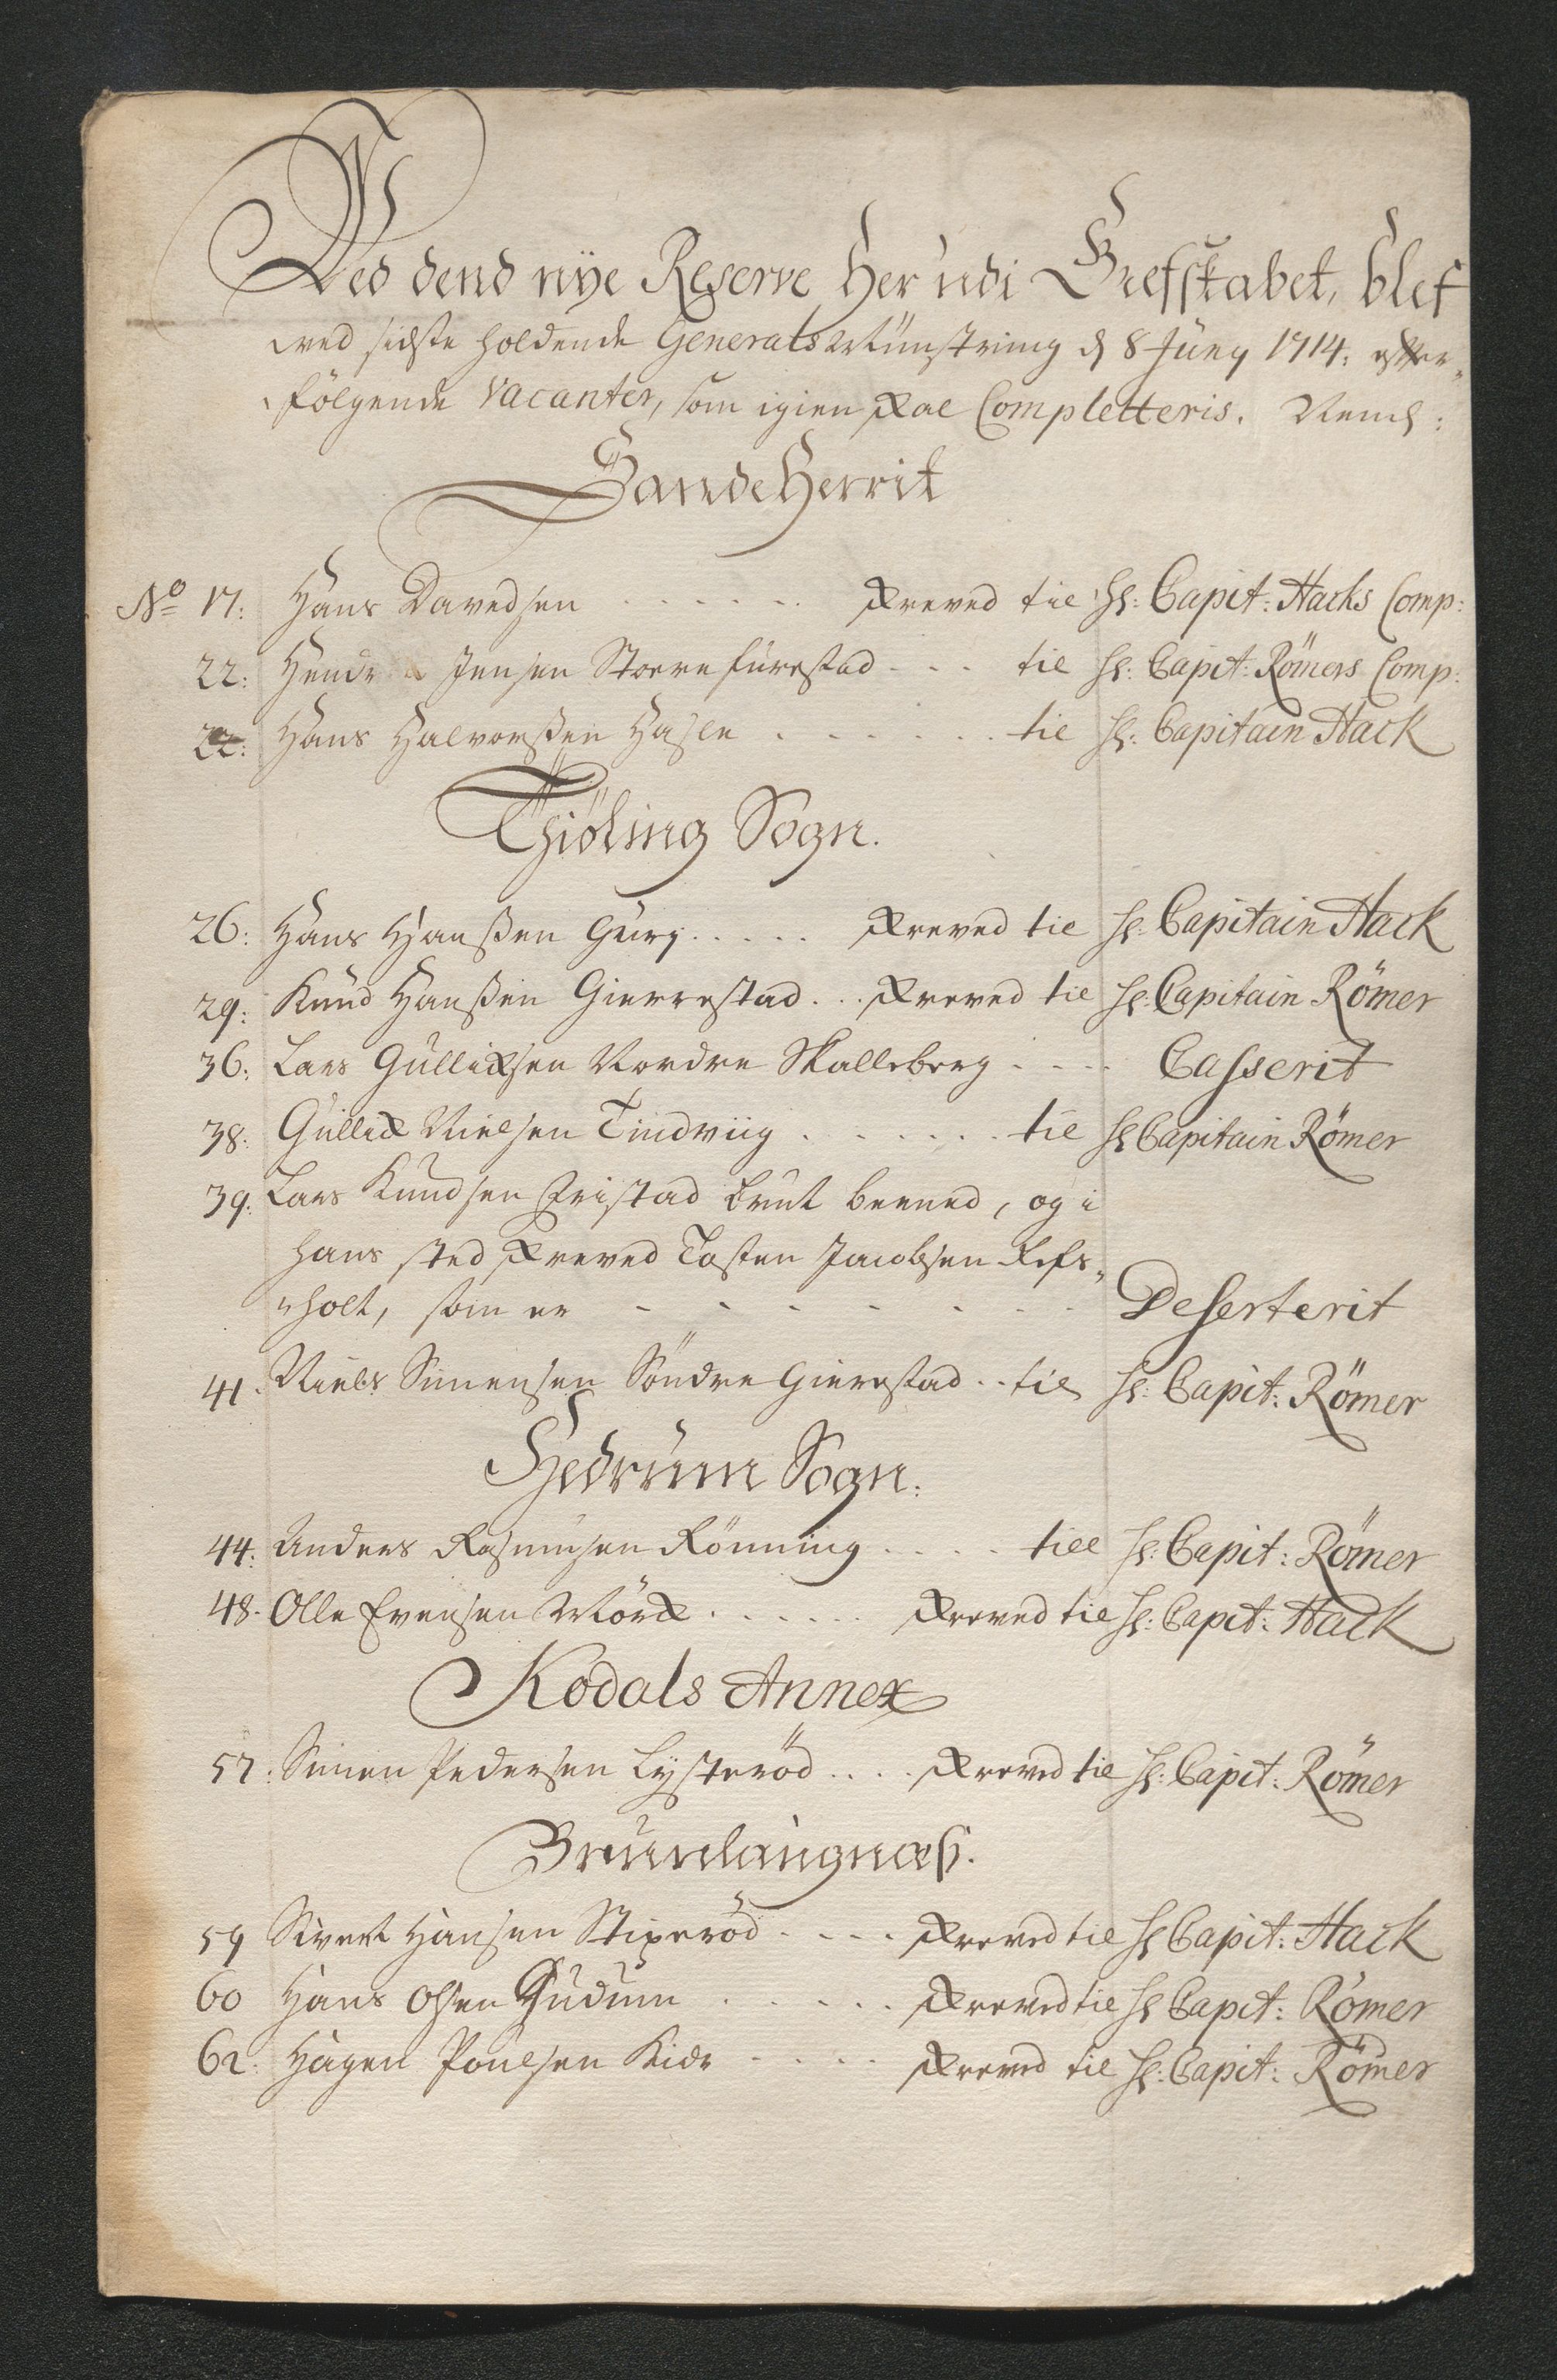 Ved dend nÿe Reserve her udi Grefskabet, blef
ved sidste holdende Generals Münstring d 8 Juny 1714: effter„
følgende Vacanter, som igien skal Completteris. Neml:
Sande Herrit
No 17: Hans Davedsen . . . . . . skreved til Hr: Capit: Hacks Comp:
22: Jensen Storefurestad . . . til Hr: Capit: Römers Comp:
22: Hans Halvorßen Hasle . . . . . . til Hr: Capitain Hack
Thiøling Sogn.
26: Hans Hanßen Gury . . . . . skreved til Hr: Capitain Hack
29: Knud Hanßen Gierrestad . . . skreved til Hr: Capitain Römer
36: Lars Gullichsen Nordre Skalleberg . . . . Casserit
38: Gullich Nielsen Tindviig . . . . . . . til Hr Capitain Römer
39: Lars Knudsen Fristad brut beened, og i
hans sted skreved Tosten Jacobsen Refs„
„holt, som er - - - - - - Deserterit
41. Niels Simensen Söndre Gierestad . . til Hr: Capit: Römer
Hedrum Sogn:
44: Anders Rasmusen Rönning . . . . till Hr: Capit: Römer
48. Olle Evensen Mörch . . . . . . skreved til Hr: Capit: Hack
Kodals Annex
57: Simen Pedersen Lysteröd . . . . skreved til Hr: Capit: Römer
Brunlaugnæs.
59 Sivert Hansen Stixeröd . . . . skreved til Hr Capit: Hack
60 Hans Olsen Gudum . . . . . skreved til Hr Capit: Römer
62: Hagen Poulsen Kide . . . . skreved til Hr: Capit: Römer